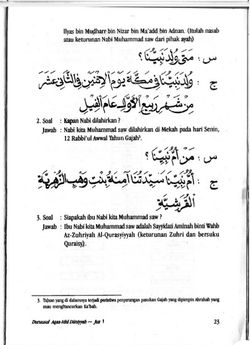 Ilyas bin Mudharr bin Nizar bin Ma'add bin Adnan. (Itulah nasab
atau keturunan Nabi Muhammad saw dari pihak ayah)
س : مَتَى وُلِدَ نَبِيُّنَا ؟
ج : وُلِدَ نَبِيُّنَا فِي مَكَّةَ يَوْمَ الْاِثْنَيْنِ فِي الثَّانِيْ عَشَرَ
مِنْ شَهْرِ رَبِيْعِ الْاَوَّلِ عَامَ الْفِيْلِ
2. Soal : Kapan Nabi dilahirkan ?
Jawab : Nabi kita Muhammad saw dilahirkan di Mekah pada hari Senin,
12 Rabbi'ul Awwal Tahun Gajah³.
س : مَنْ أُمُّ نَبِيِّنَا ؟
ج : أُمُّ نَبِيِّنَا سَيِّدَتُنَا آمِنَةُ بِنْتُ وَهْبِ الزُّهْرِيَّةِ
الْقُرَشِيَّةِ
3. Soal : Siapakah ibu Nabi kita Muhammad saw ?
Jawab : Ibu Nabi kita Muhammad saw adalah Sayyidati Aminah binti Wahb
Az-Zuhriyah Al-Qurasyiyyah (keturunan Zuhri dan bersuku
Quraisy).
3 Tahun yang di dalamnya terjadi peristiwa penyerangan pasukan Gajah yang dipimpin Abrahah yang
mau menghancurkan Ka'bah.
Durusul Aqa-idid Diniyyah — Juz 1
23